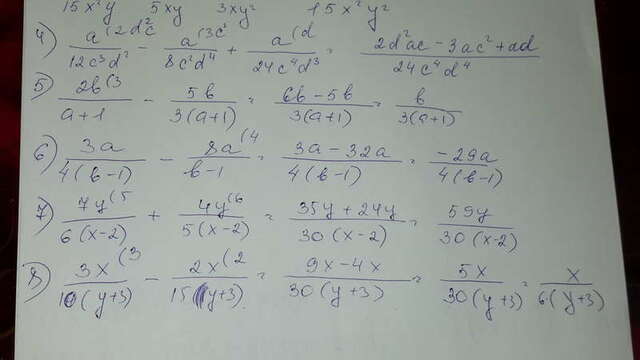 15x²y 5xy 3xy² 15x²y²
4) a(2d²c / 12c³d² - a(3c² / 8c²d⁴ + a(d / 24c⁴d³ = 2d²ac - 3ac² + ad / 24c⁴d⁴
5) 2b(3 / a+1 - 5b / 3(a+1) = 6b-5b / 3(a+1) = b / 3(a+1)
6) 3a / 4(b-1) - 8a(4 / b-1 = 3a-32a / 4(b-1) = -29a / 4(b-1)
7) 7y(5 / 6(x-2) + 4y(6 / 5(x-2) = 35y+24y / 30(x-2) = 59y / 30(x-2)
8) 3x(3 / 10(y+3) - 2x(2 / 15(y+3) = 9x-4x / 30(y+3) = 5x / 30(y+3) = x / 6(y+3)